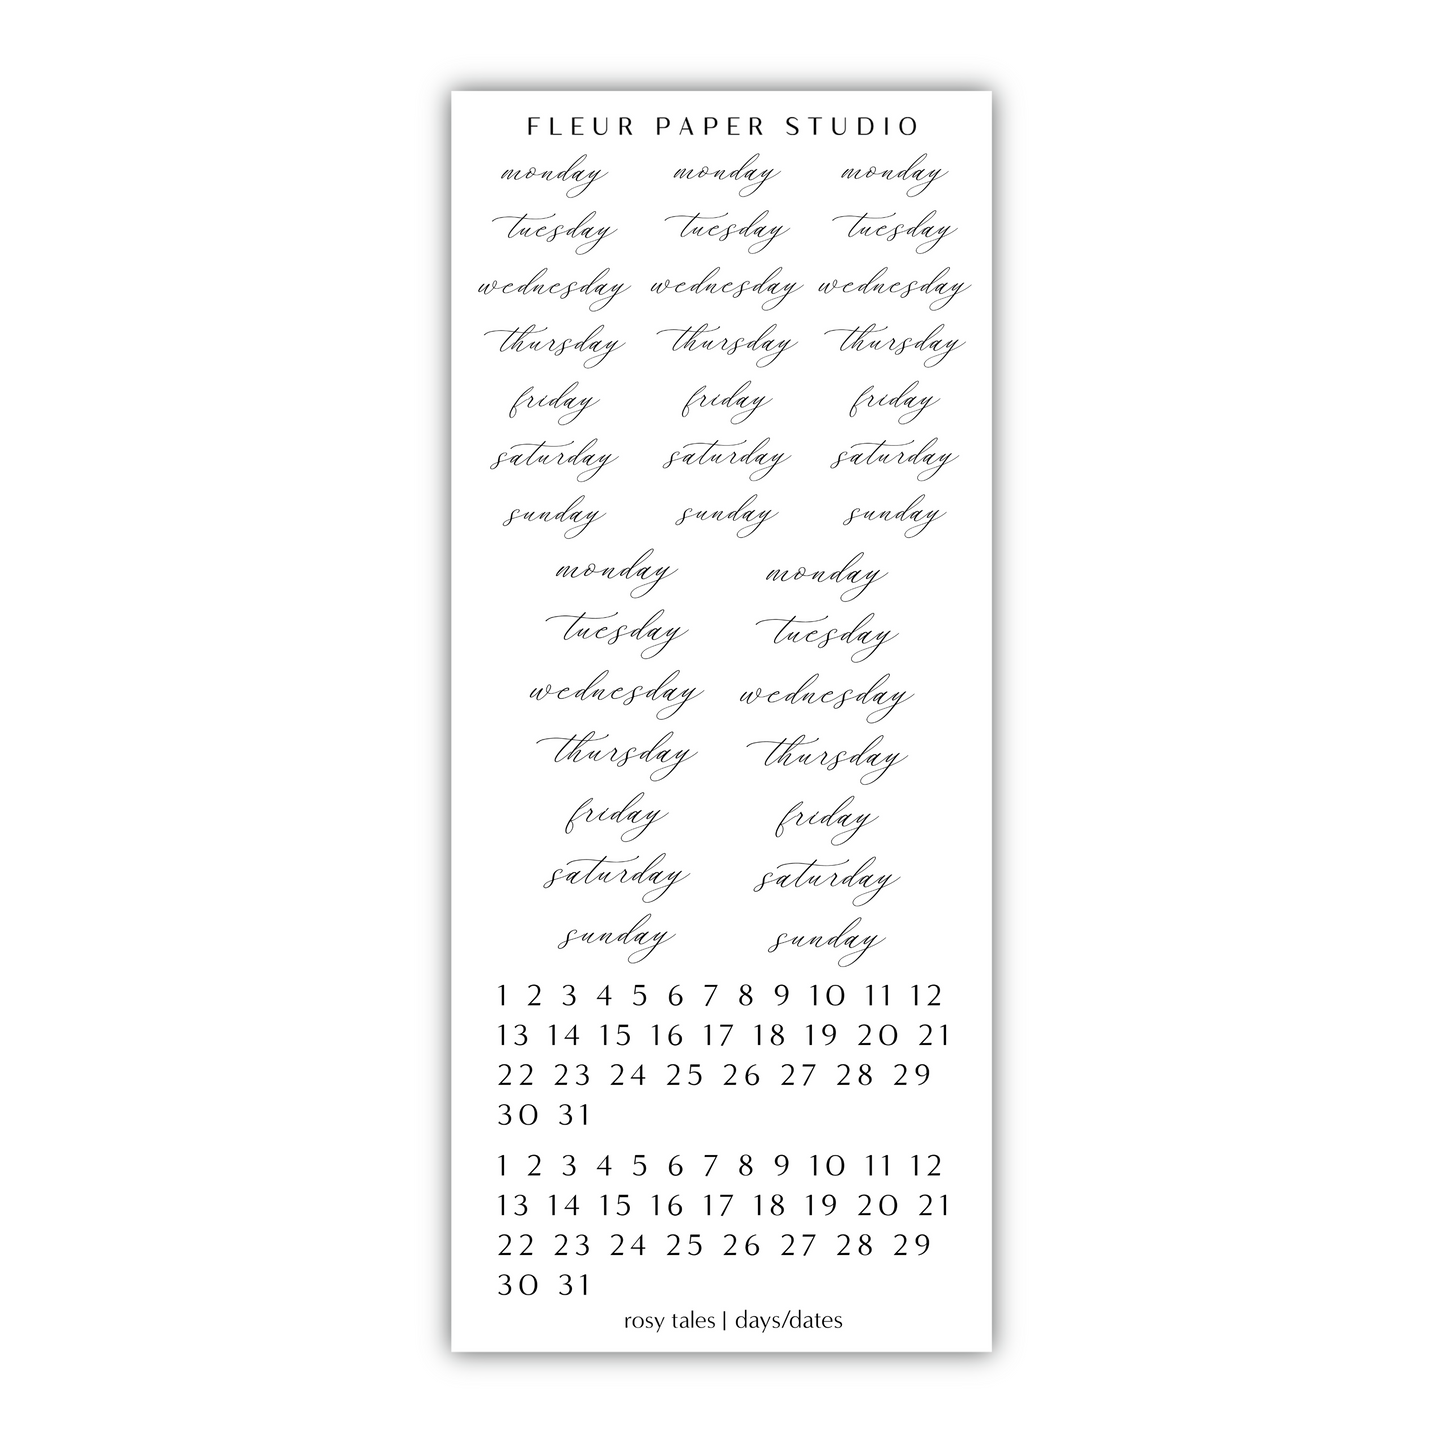 FLEUR PAPER STUDIO
monday monday monday
tuesday tuesday tuesday
wednesday wednesday wednesday
thursday thursday thursday
friday friday friday
saturday saturday saturday
sunday sunday sunday
monday monday
tuesday tuesday
wednesday wednesday
thursday thursday
friday friday
saturday saturday
sunday sunday
1 2 3 4 5 6 7 8 9 10 11 12
13 14 15 16 17 18 19 20 21
22 23 24 25 26 27 28 29
30 31
1 2 3 4 5 6 7 8 9 10 11 12
13 14 15 16 17 18 19 20 21
22 23 24 25 26 27 28 29
30 31
rosy tales | days/dates